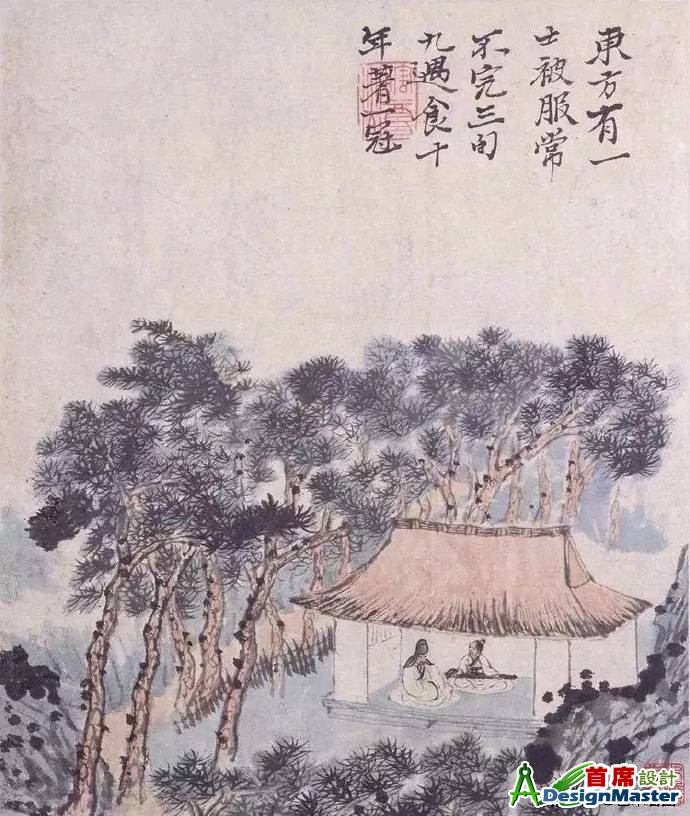 東方有一
士被服常
不完三旬
九遇食十
年著一冠
首席設計
ADesignMaster